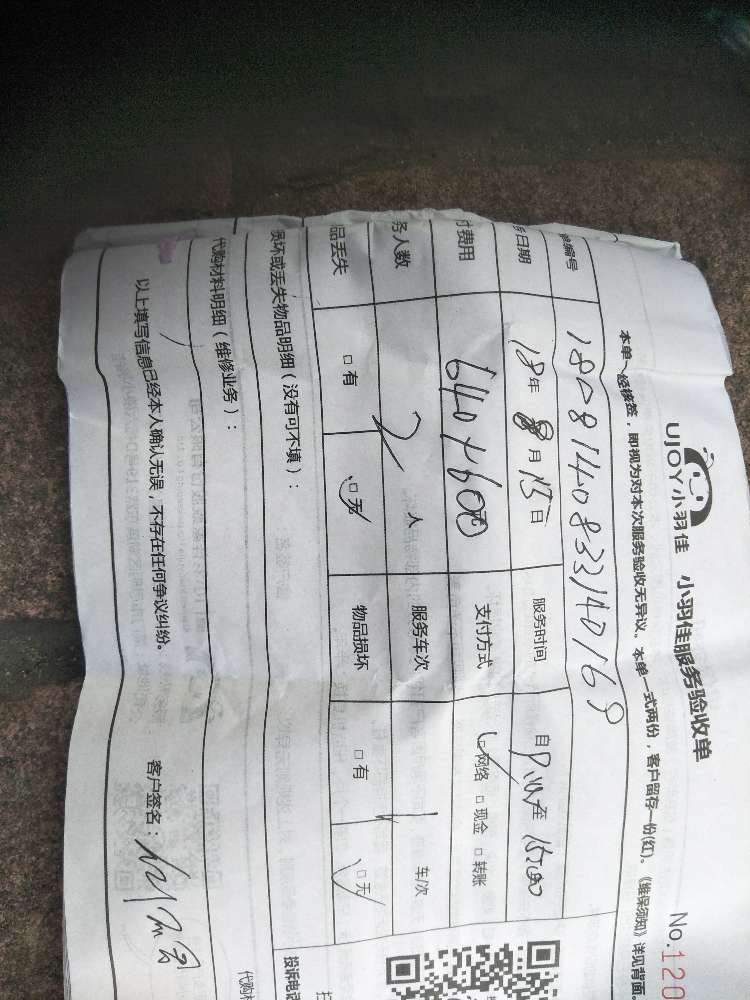 UJOY小羽佳 小羽佳服务验收单
No.120
本单一经核签，即视为对本次服务验收无异议。本单一式两份，客户留存一份(红)。《维保须知》详见背面。
单编号 1808140833140169
务日期 18年 8月 15日 服务时间 自 至 15:00
付费用 640+600 支付方式 网络 □现金 □转账
务人数 2 人 服务车次 1 车/次
品丢失 □有 □无 物品损坏 □有 □无
损坏或丢失物品明细（没有可不填）：
代购材料明细（维修业务）：
以上填写信息已经本人确认无误，不存在任何争议纠纷。 客户签名：
投诉电话
代购材